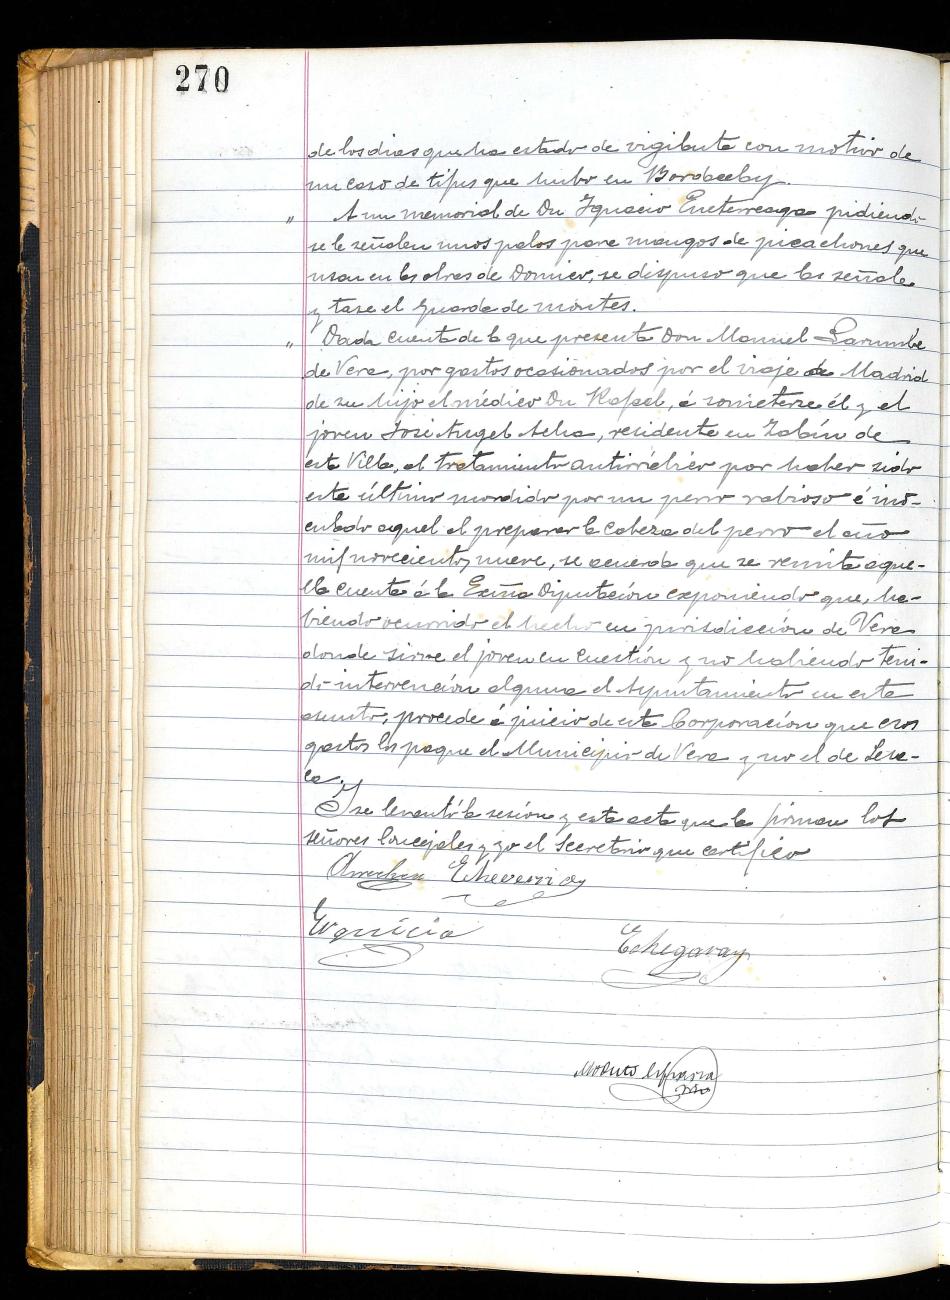 270
de los dias que ha estado de vigilante con motivo de
un caso de tifus que hubo en
" A un memorial de Dn Ignacio pidiendo
se le señalen unos palos para mangos de picachones que
usan en las obras de Domico, se dispuso que los señale
y tase el guarda de montes.
" Dada cuenta de la que presenta Don Manuel Larumbe
de Vera, por gastos ocasionados por el viaje de Madrid
de su hijo el médico Dn Rafael, á someterse él y el
joven José Angel, residente en de
esta Villa, al tratamiento antirrábico por haber sido
este último mordido por un perro rabioso é ino-
culado aquel al preparar la cabeza del perro el año
mil novecientos nueve, se acuerda que se remita aque-
lla cuenta á la Exma Diputación exponiendo que, ha-
biendo ocurrido el hecho en jurisdicción de Vera
donde sirve el joven en cuestión y no habiendo teni-
do intervención alguna el Ayuntamiento en este
asunto, procede á juicio de esta Corporación que esos
gastos los pague el Municipio de Vera y no el de Lesa-
ca.
Y se levantó la sesión y esta acta que la firman los
señores Concejales y yo el Secretario que certifico
Echeverria
Echegaray
Modesto